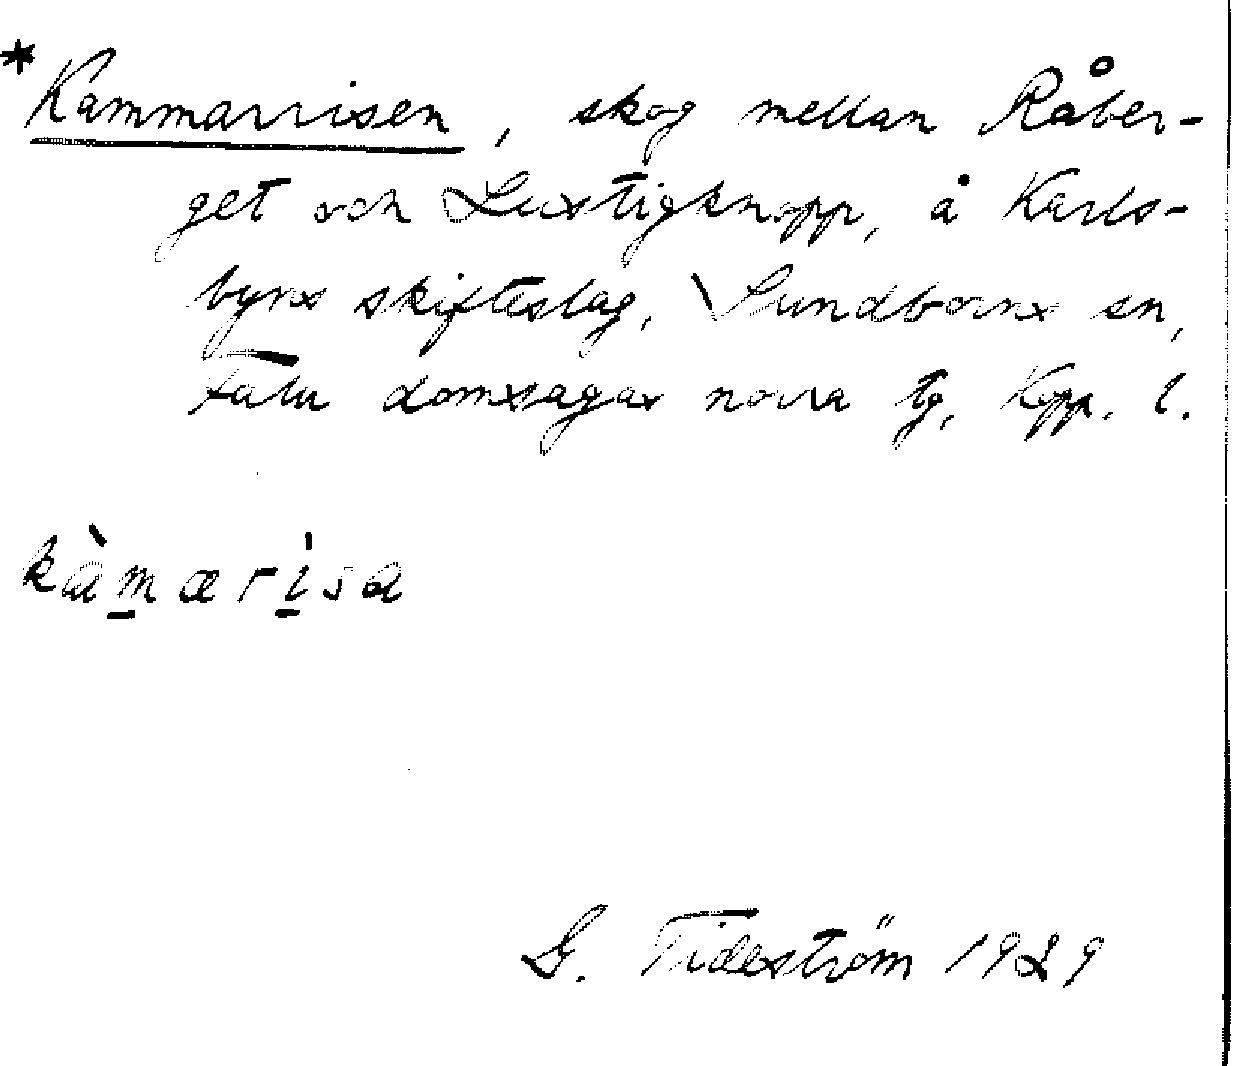 *Kammarrisen, skog mellan Råber-
get och Lustigknopp, å Karls-
byns skifteslag, Sundborns sn,
Falu domsagas norra tg, Kopp. l.
kàmærisa
G. Tideström 1929